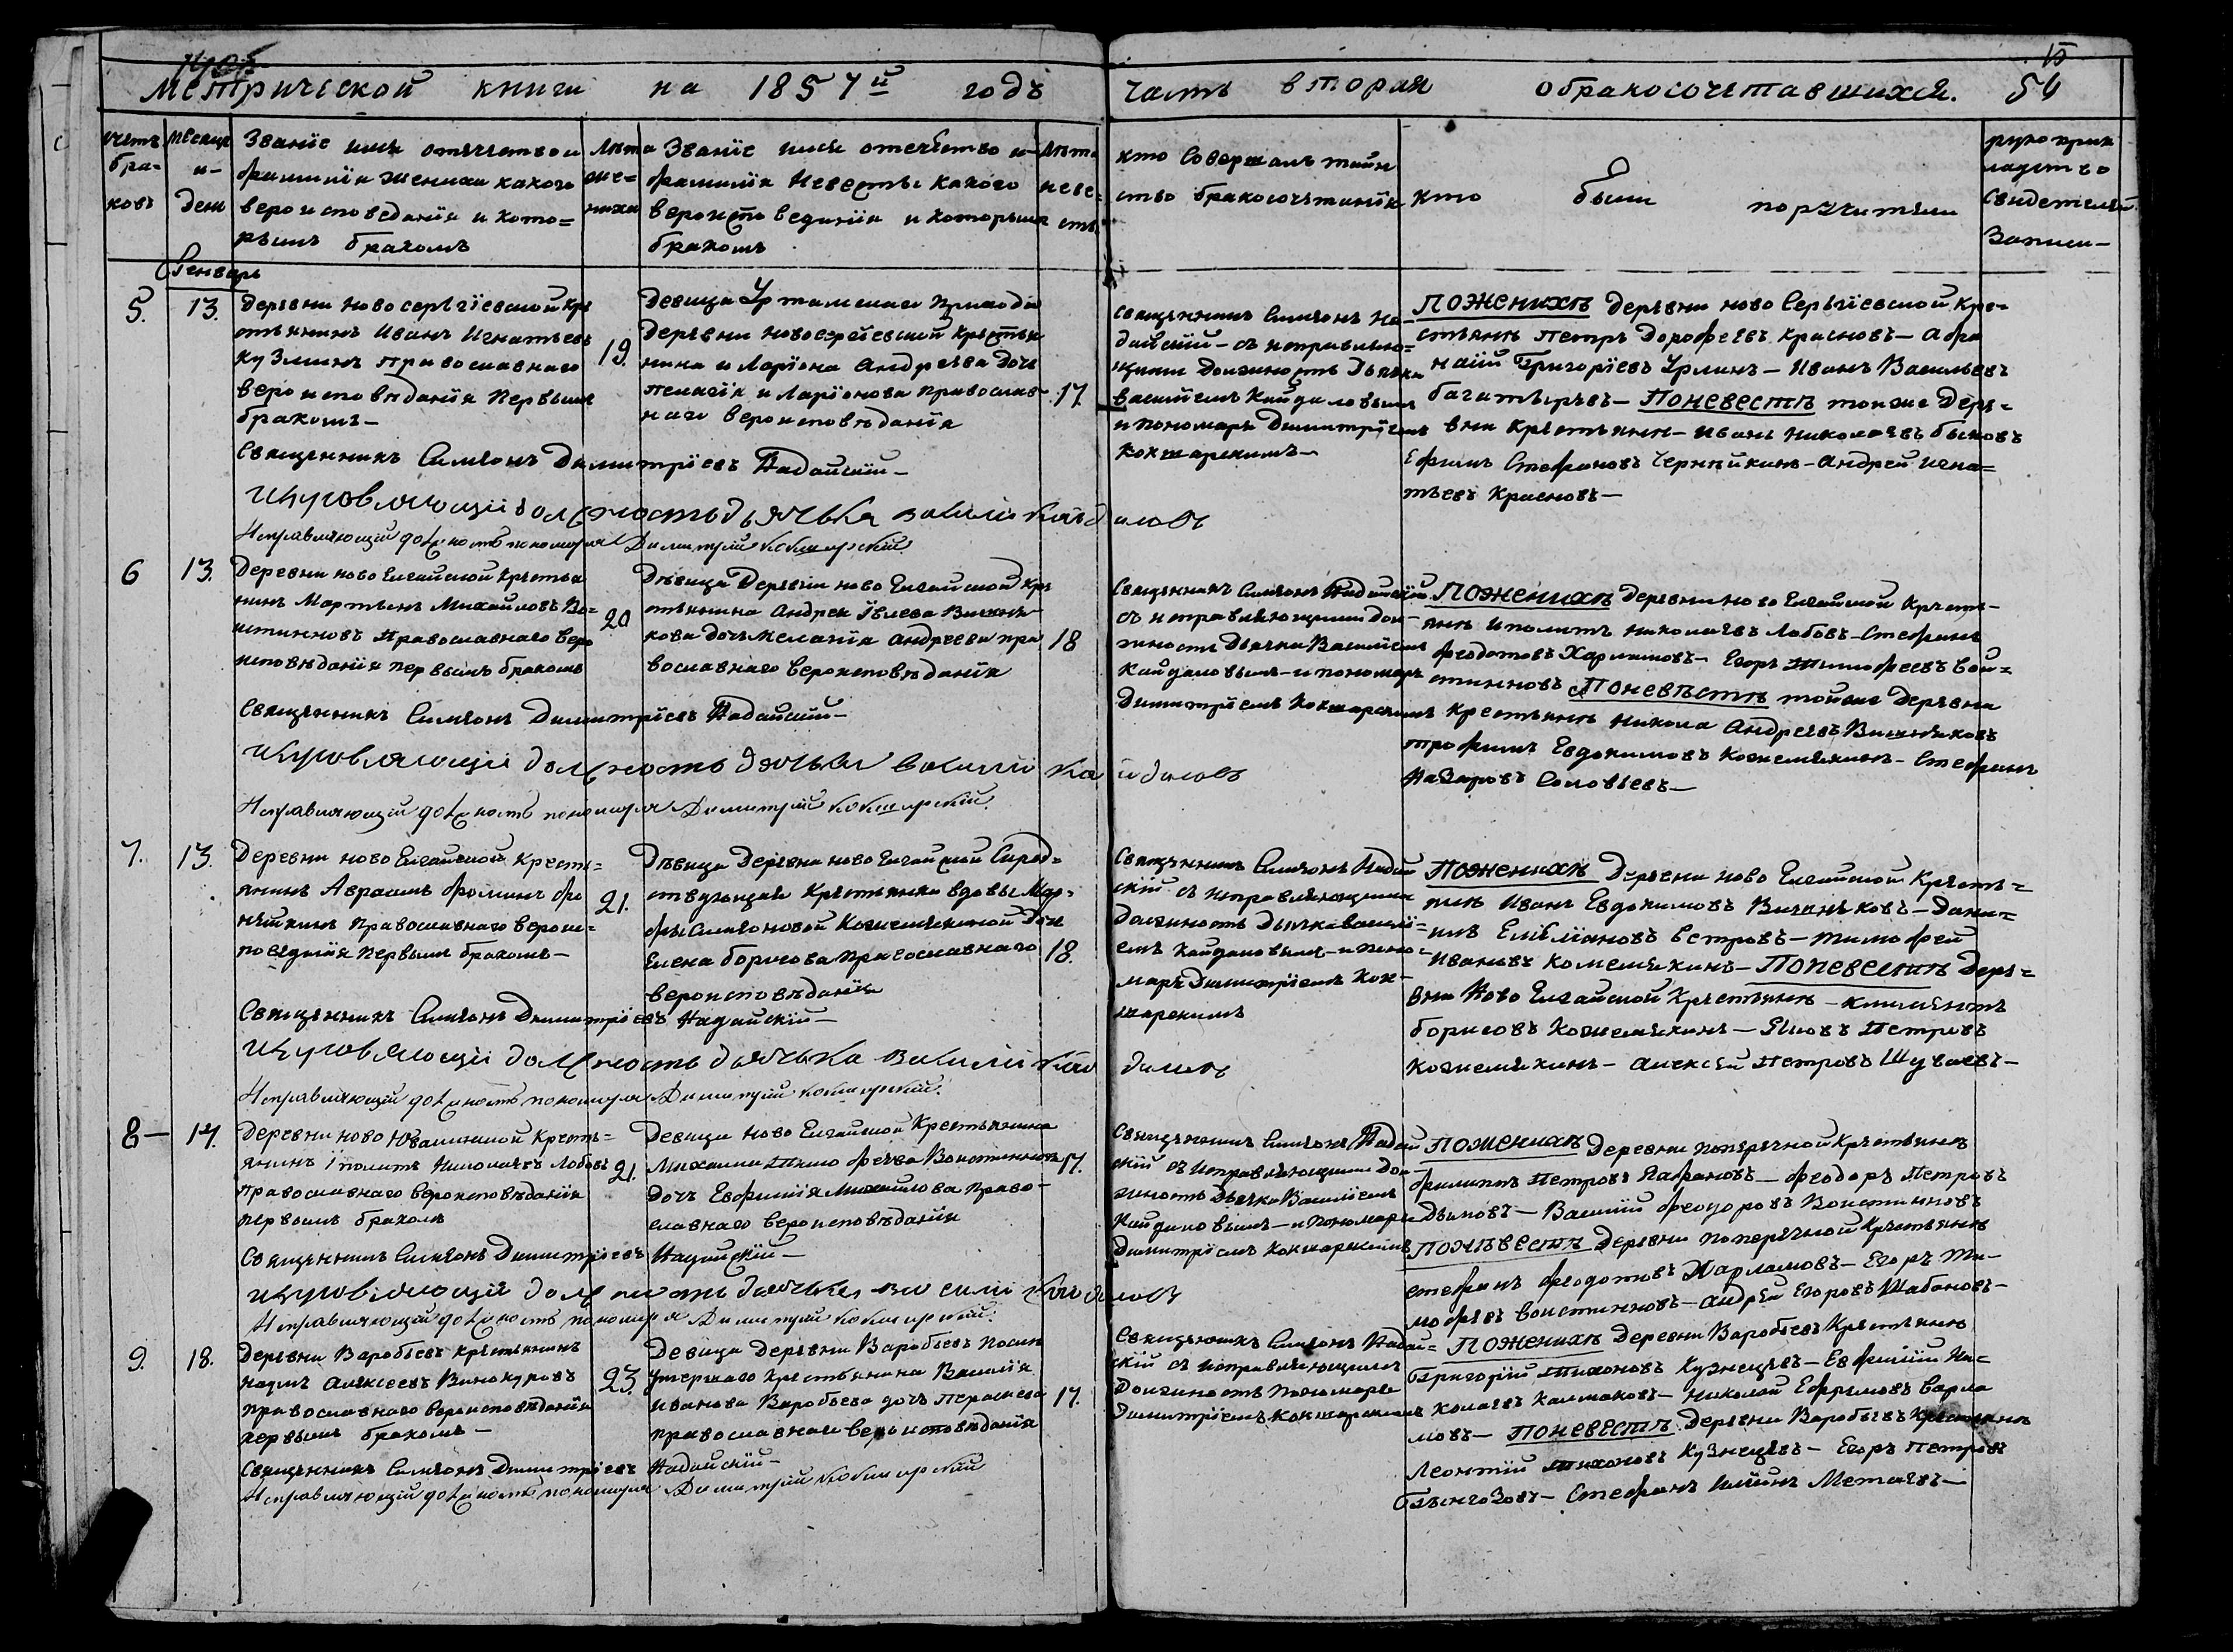 Метрической книги на 1857й годъ
часть вторая о бракосочетавшихся. 54
счетъ бра- ковъ
месяцъ и- День
Званіе имя отечество и
фамилія жениха какого
вероисповеданія и кото=
рымъ бракомъ
Лета же= ниха
Званіе имя отечество и
фамилія Невесты какого
вероисповеданія и которымъ
бракомъ
лета неве= сты
кто Совершалъ таин
ство бракосочетанія
кто были поручители
рукоприк
ладство
Свидетелей
Записи-
Генварь
5. 13.
Деревни новосергіевской кре
стьянинъ Иванъ Игнатьевъ
Кузминъ Православнаго
вероисповѣданія Первымъ
бракомъ-
19.
Девица Уртамскаго прихода
Деревни новосергіевской крестья
нина иларіона Андреева дочь
пелагія иларіонова православ-
наго вероисповѣданія
17.
Священникъ Симеонъ На-
дайскій- съ исправляю=
щими Должность Дьячка
василіемъ Кайдаловымъ
и пономаря Димитріемъ
Кокшарскимъ-
По женихѣ Деревни ново Сергіевской Кре-
стьянѣ Петръ Дорофеевъ Красновъ- Афа
насій Григоріевъ Урлинъ- Иванъ Васильевъ
багатыревъ- По невестѣ тойже Дере=
вни крестьяни- иванъ николаевъ быковъ
Ефимъ Стефановъ Чернѣйкинъ- Андрей игна=
тьевъ Красновъ-
Священникъ Симеонъ Димитріевъ Надайскій-
исправляющій должность дьячька василій кайдаловъ
Исправляющій должность пономаря Димитрій Кокшарскій.
6 13.
Деревни ново Елгайской Крестья
нинъ Мартынъ Михайловъ Во=
истинновъ Православнаго Веро
исповѣданія первымъ бракомъ
20
Дѣвица Деревни ново Елгайской кре
стьянина Андрея
кова дочь Меланія Андреева пра
вославнаго вероисповѣданія
18
Священникъ Симеонъ Надайскій
съ исправляющими Дол-
жность Дьячка Василіемъ
Кайдаловымъ- и пономаря
Димитріемъ Кокшарскимъ
По женихѣ Деревни ново Елгайской Кресть-
янѣ иполитъ николаевъ Лобовъ- Стефанъ
феодотовъ Харламовъ- Егоръ тимофеевъ Вои=
стинновъ По невѣстѣ тойже Деревни
крестьянѣ Никола Андреевъ
трофимъ Евдокимовъ Кожемякинъ- Стефанъ
Назаровъ Соловьевъ-
Священникъ Симеонъ Димитріевъ Надайскій-
исправляющій должность дьячька василій кайдаловъ
Исправляющій должность пономаря Димитрій Кокшарскій.
7. 13.
Деревни ново Елгайской кресть=
янинъ Авраамъ фоминъ фо
нѣйкинъ православнаго вероис=
поведанія первымъ бракомъ-
21.
Дѣвица Деревни ново Елгайской Сирод=
ствующая крестьянки вдовы Мар-
фы Симеоновой Кожемякиной Дочь
Елена борисова православнаго
вероисповѣданія
18.
Священникъ Симеонъ Надай
скій съ исправляющими
Должность Дьячка василі=
емъ Кайдаловымъ- и поно=
маря Димитріемъ Кок-
шарскимъ
По женихѣ Деревни ново Елгайской Кресть=
янѣ Иванъ Евдокимовъ - Дани=
илъ Емельяновъ Ветровъ- тимофей
Ивановъ Комемякинъ- По невестѣ Дере=
вни Ново Елгайской Крестьянѣ- климентъ
борисовъ Кожемякинъ- Яковъ Петровъ
Кожемякинъ- Алексѣй Петровъ Шуваевъ-
Священникъ Симеонъ Димитріевъ Надайскій-
исправляющій должность дьячька василій кайдаловъ
Исправляющій должность пономаря Димитрій Кокшарскій.
8- 17.
Деревни ново Ювалинской Кресть=
янинъ іполитъ Николаевъ Лобовъ
православнаго вероисповѣданія
первымъ бракомъ
21.
Девица ново Елгайской Крестьянина
Михаила тимофеева Воистиннова
дочь Евфимія Михайлова право-
славнаго вероисповѣданія
17.
Священникъ Симеонъ Надай
скій съ исправляющими Дол-
жность Дьячка Василіемъ
Кайдаловымъ- и Пономаря
Димитріемъ Кокшарскимъ
По женихѣ Деревни поперечной крестьянѣ
филиппъ Петровъ - феодоръ Петровъ
Дьяковъ- Василій феодоровъ Воистинновъ
По невестѣ Деревни поперечной крестьянѣ
стефанъ феодотовъ Харламовъ- Егоръ ти-
мофеевъ воистинновъ- андрей Егоровъ Шабановъ-
Священникъ Симеонъ Димитріевъ Надайскій-
исправляющій должность дьячька василій кайдаловъ
Исправляющій должность пономаря Димитрій Кокшарскій.
9. 18.
Деревни Воробьевъ крестьянинъ
наумъ алексеевъ Винокуровъ
православнаго вероисповѣданія
первымъ бракомъ-
23.
Девица Деревни Воробьевъ после
умершаго крестьянина Василія
иванова Воробьева дочь
православнаго вероисповѣданія
17.
Священникъ Симеонъ Надай=
скій съ исправляющимъ
Должность пономаря
Димитріемъ Кокшарскимъ
По женихѣ Деревни Воробьевъ Крестьянѣ
Григорій тихоновъ Кузнецевъ- Евфимій Ни=
колаевъ Калмаковъ- николай Ефремовъ варла
мовъ- По невестѣ Деревни Воробьевъ крестьянѣ
Леонтій тихоновъ Кузнецевъ- Егоръ петровъ
- Стефанъ ильинъ Метаевъ-
Священникъ Симеонъ Димитріевъ Надайскій-
Исправляющій должность пономаря Димитрій Кокшарскій